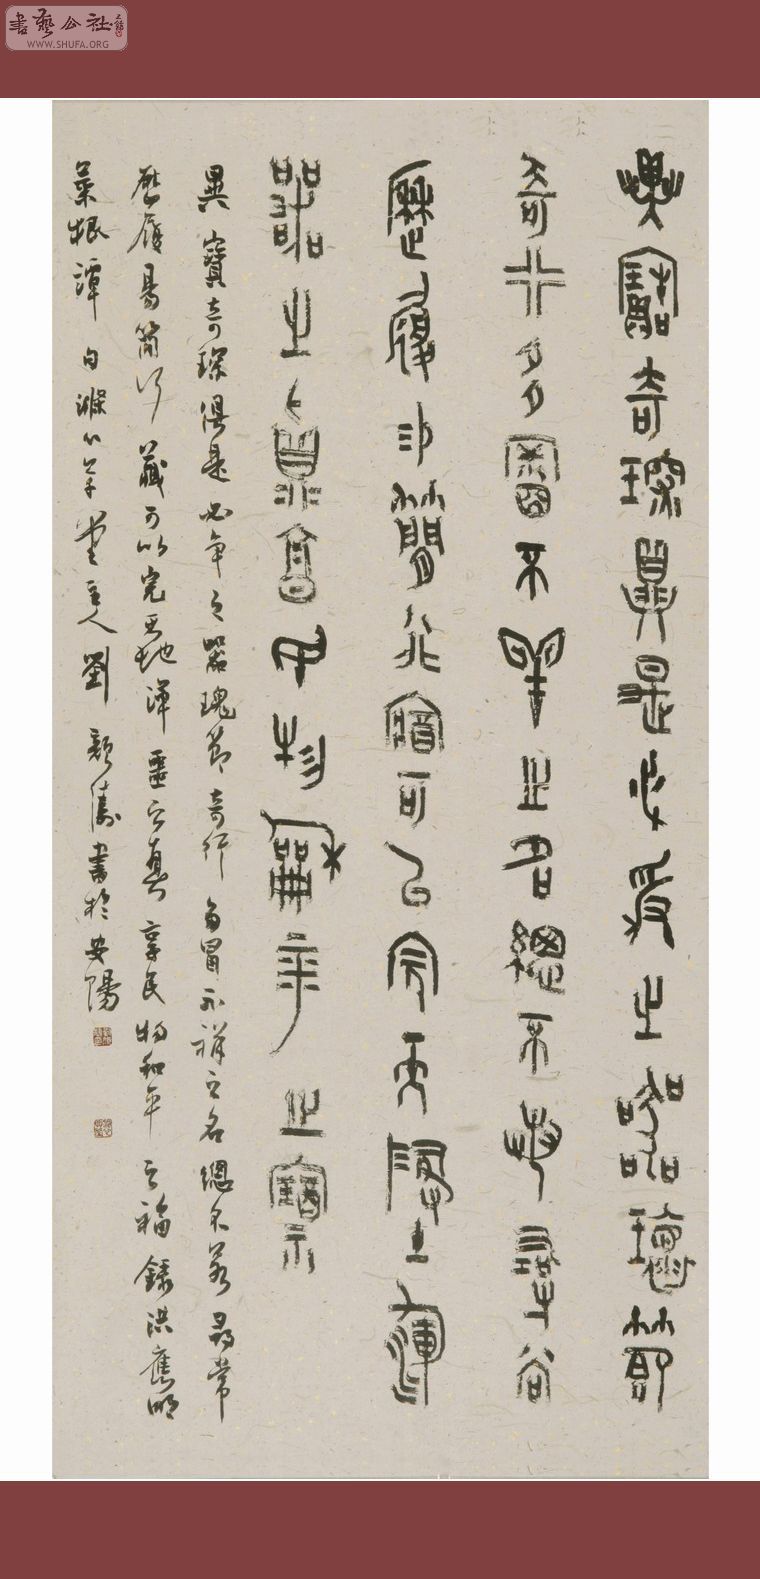 書藝公社
WWW.SHUFA.ORG
異寶奇琛俱是必爭之器瑰節
奇行多冒不祥之名總不若尋常
歷履易簡行藏可以完天地渾
噩之真享民物和平之福
異寶奇琛俱是必爭之器瑰節奇行多冒不祥之名總不若尋常
歷履易簡行藏可以完天地渾噩之真享民物和平之福錄洪應明
菜根譚句滌心草堂主人劉顏濤書於安陽